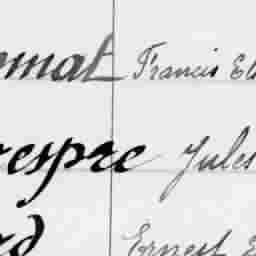 omat Francis El
respre Jules
rd Ernest E